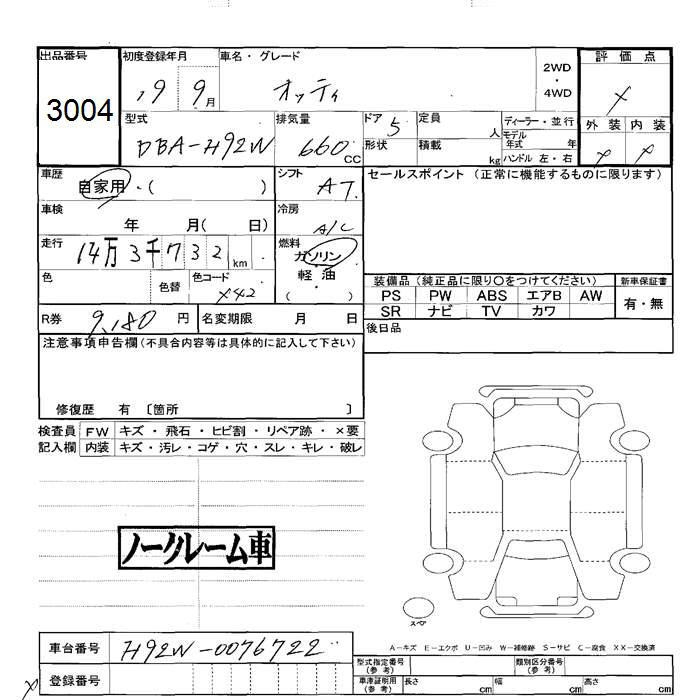 出品番号
3004
初度登録年月
19 9月
車名・グレード
オッティ
2WD
・
4WD
評価点
×
型式
DBA-H92W
排気量
660 CC
ドア 5
形状
定員 人
積載 kg
ディーラー・並行
モデル年式 年
ハンドル 左・右
外装 内装
× ×
車歴
自家用・( )
シフト
AT
セールスポイント (正常に機能するものに限ります)
車検
年 月( 日)
冷房
A/C
走行
14万3千732km
燃料
ガソリン
軽油
( )
色
色替
色コード
X42
装備品 (純正品に限り○をつけてください)
PS PW ABS エアB AW
SR ナビ TV カワ
新車保証書
有・無
R券
9,180 円
名変期限 月 日
後日品
注意事項申告欄(不具合内容等は具体的に記入して下さい)
修復歴 有 〔箇所 〕
検査員 FW キズ・飛石・ヒビ割・リペア跡・×要
記入欄 内装 キズ・汚レ・コゲ・穴・スレ・キレ・破レ
ノークレーム車
スペア
A-キズ E-エクボ U-凹み W-補修跡 S-サビ C-腐食 XX-交換済
車台番号
H92W-0076722
登録番号
×
型式指定番号
(参考)
類別区分番号
(参考)
車庫証明用
(参考)
長さ cm 幅 cm 高さ cm